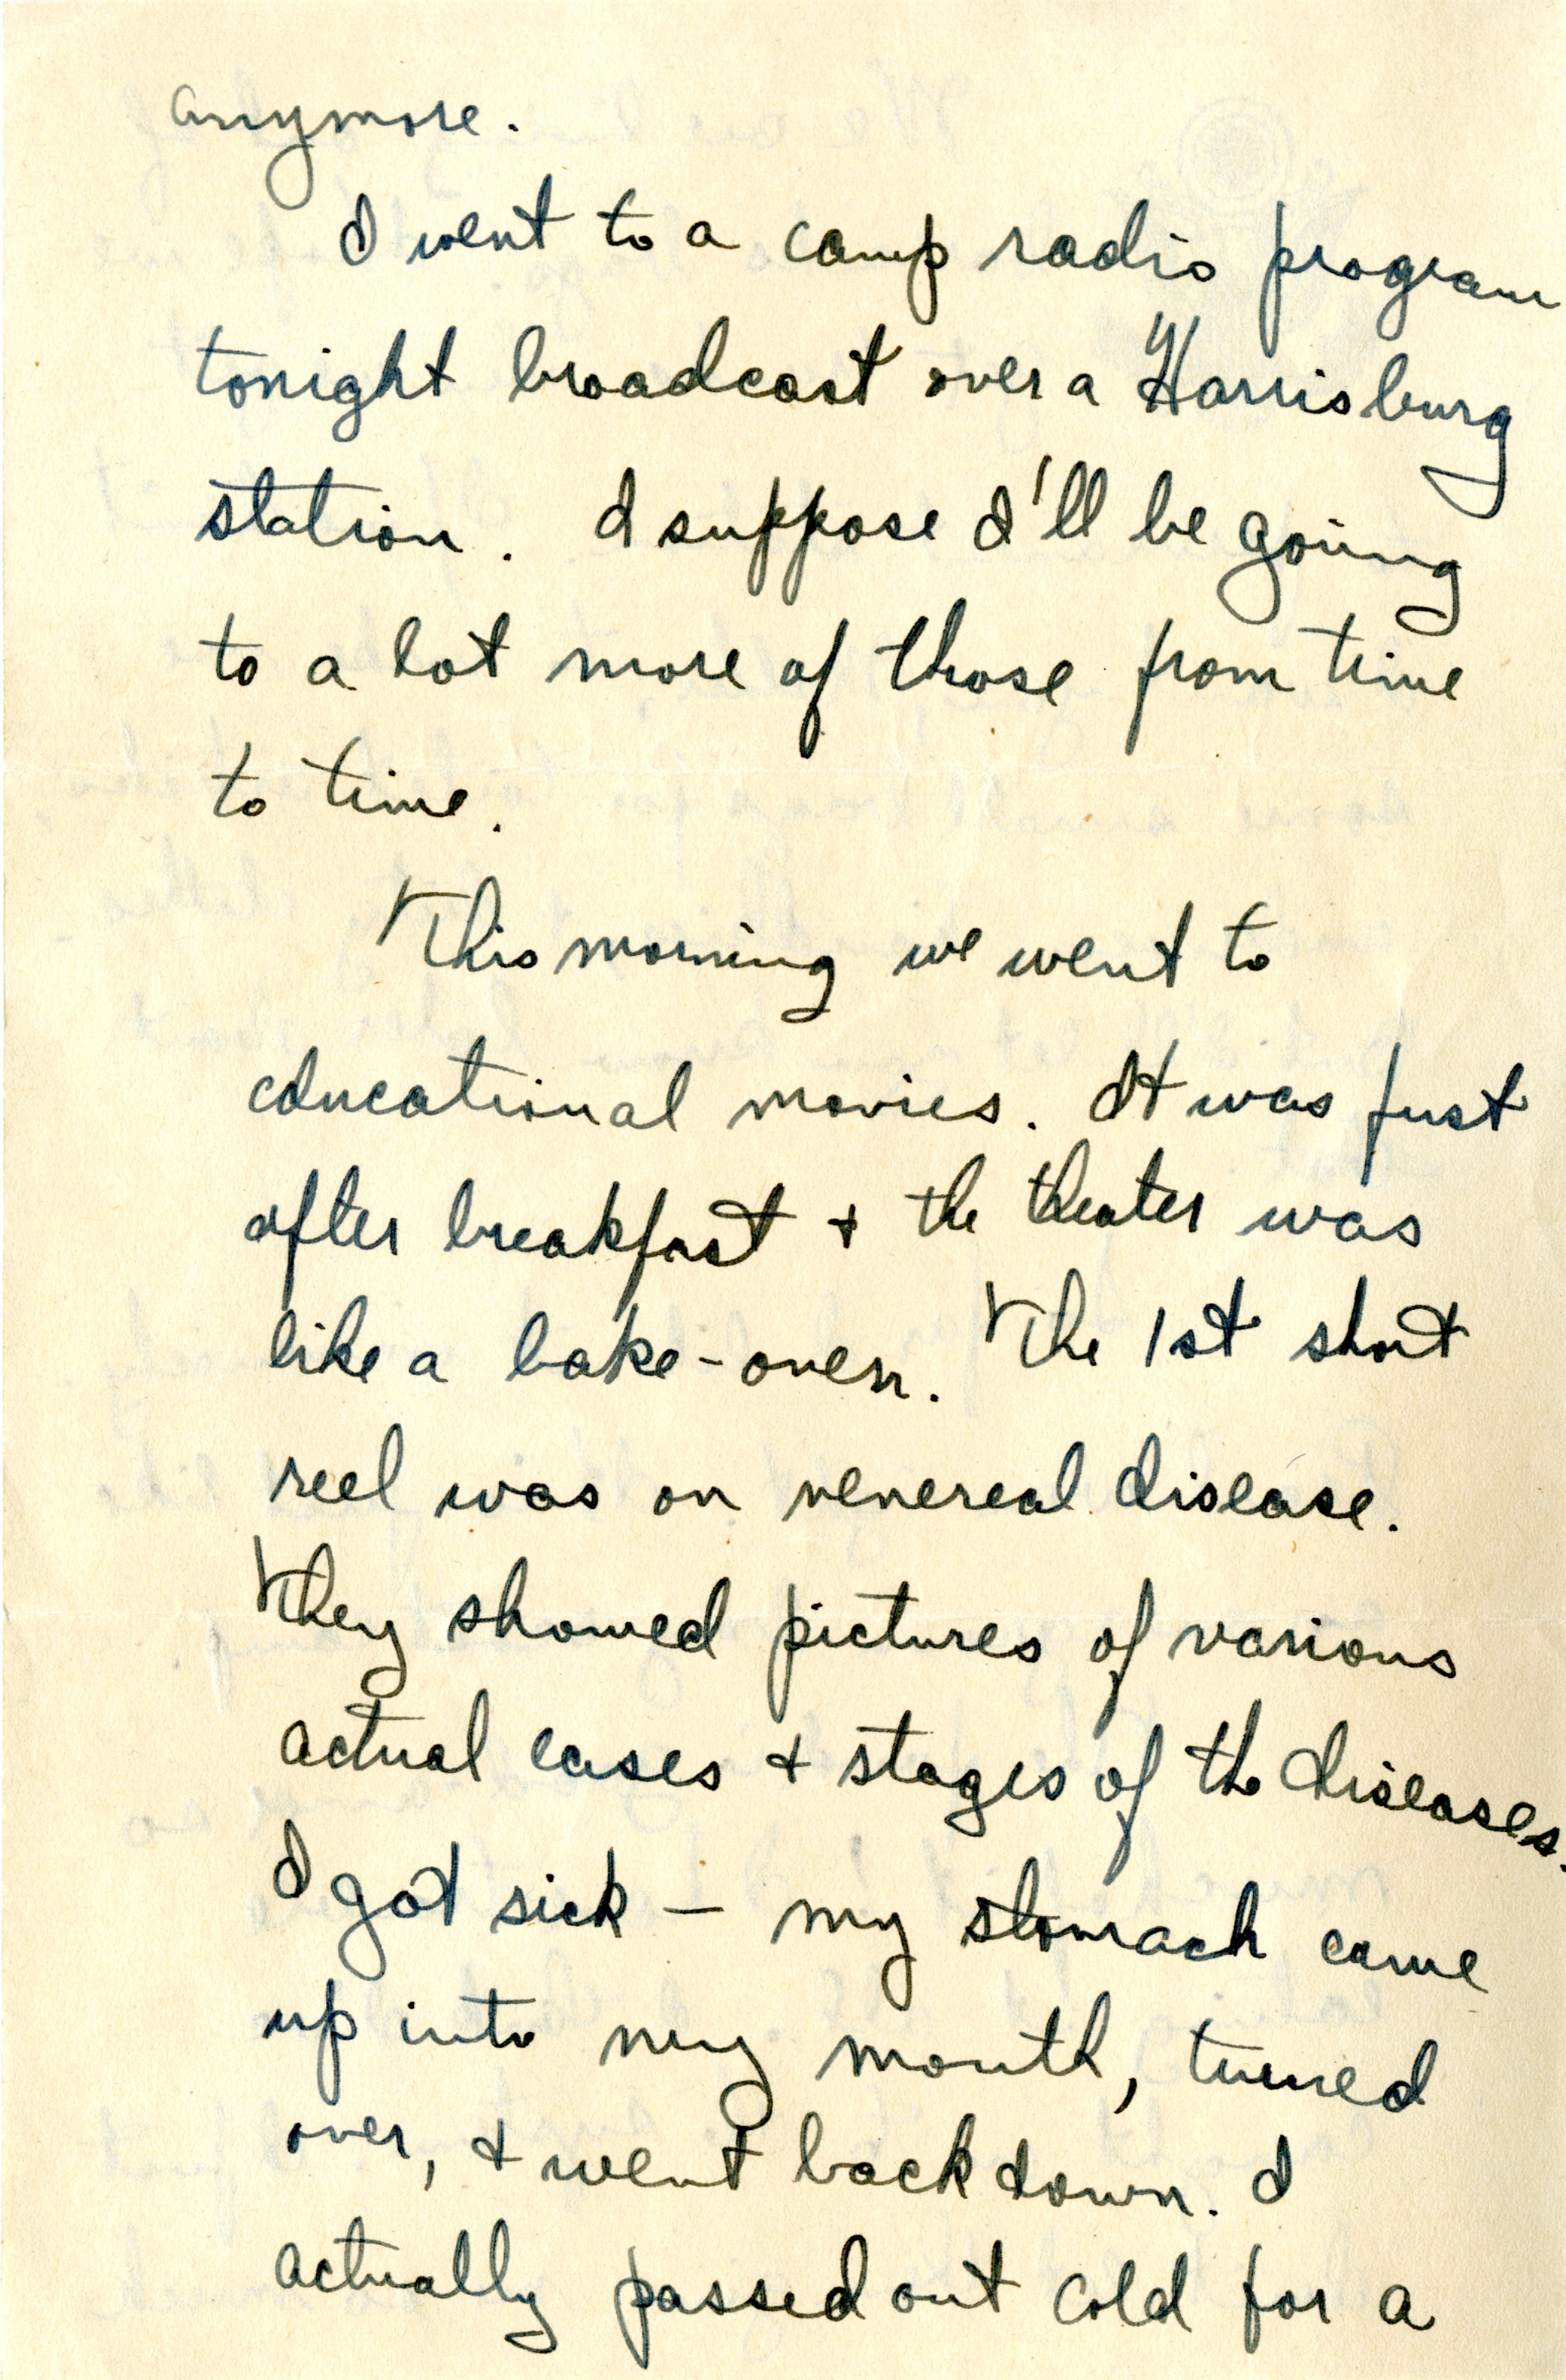 anymore.
I went to a camp radio program
tonight broadcast over a Harrisburg
station. I suppose I'll be going
to a lot more of those from time
to time.
This morning we went to
educational movies. It was just
after breakfast + the theater was
like a bake-oven. The 1st short
reel was on venereal disease.
They showed pictures of various
actual cases + stages of the diseases.
I got sick — my stomach came
up into my mouth, turned
over, + went back down. I
actually passed out cold for a